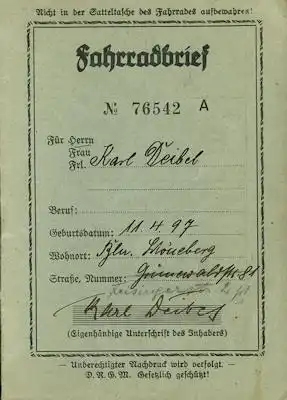 Nicht in der Satteltasche des Fahrrades aufbewahren!
Fahrradbrief
№ 76542 A
Für Herrn
Frau
Frl.
Karl Deibel
Beruf:
Geburtsdatum: 11.4.97
Wohnort: Bln. Schöneberg
Straße, Nummer: Grunewaldstr. 81
Karl Deibel
(Eigenhändige Unterschrift des Inhabers)
Unberechtigter Nachdruck wird verfolgt.
D.R.G.M. Gesetzlich geschützt!